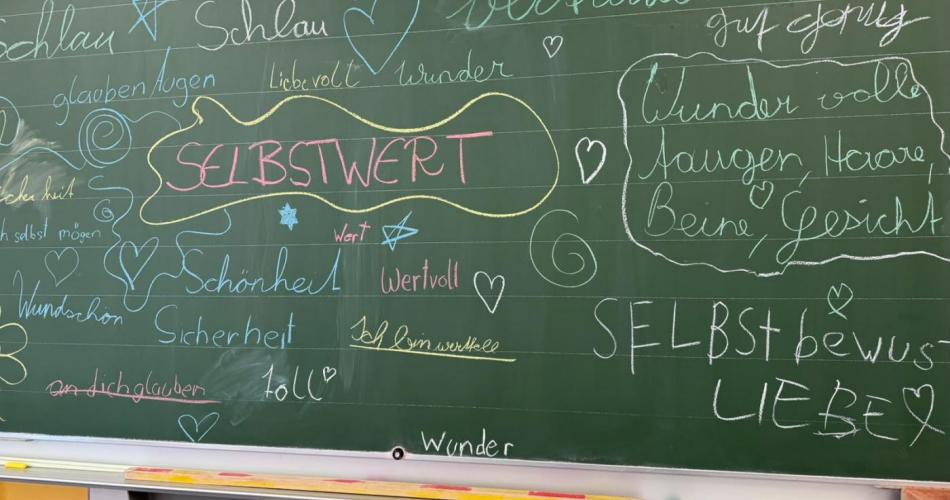 schlau
Schlau
gut genug
glauben Augen
Liebevoll
Wunder
Wunder volle
Aaugen, Haare,
Beine, Gesicht
SELBSTWERT
h selbst mögen
Wert
Schönheit
Wertvoll
Wundschön
Sicherheit
Ich bin wertvolle
SELBSt bewust
LIEBE
an dich glauben
Toll
Wunder